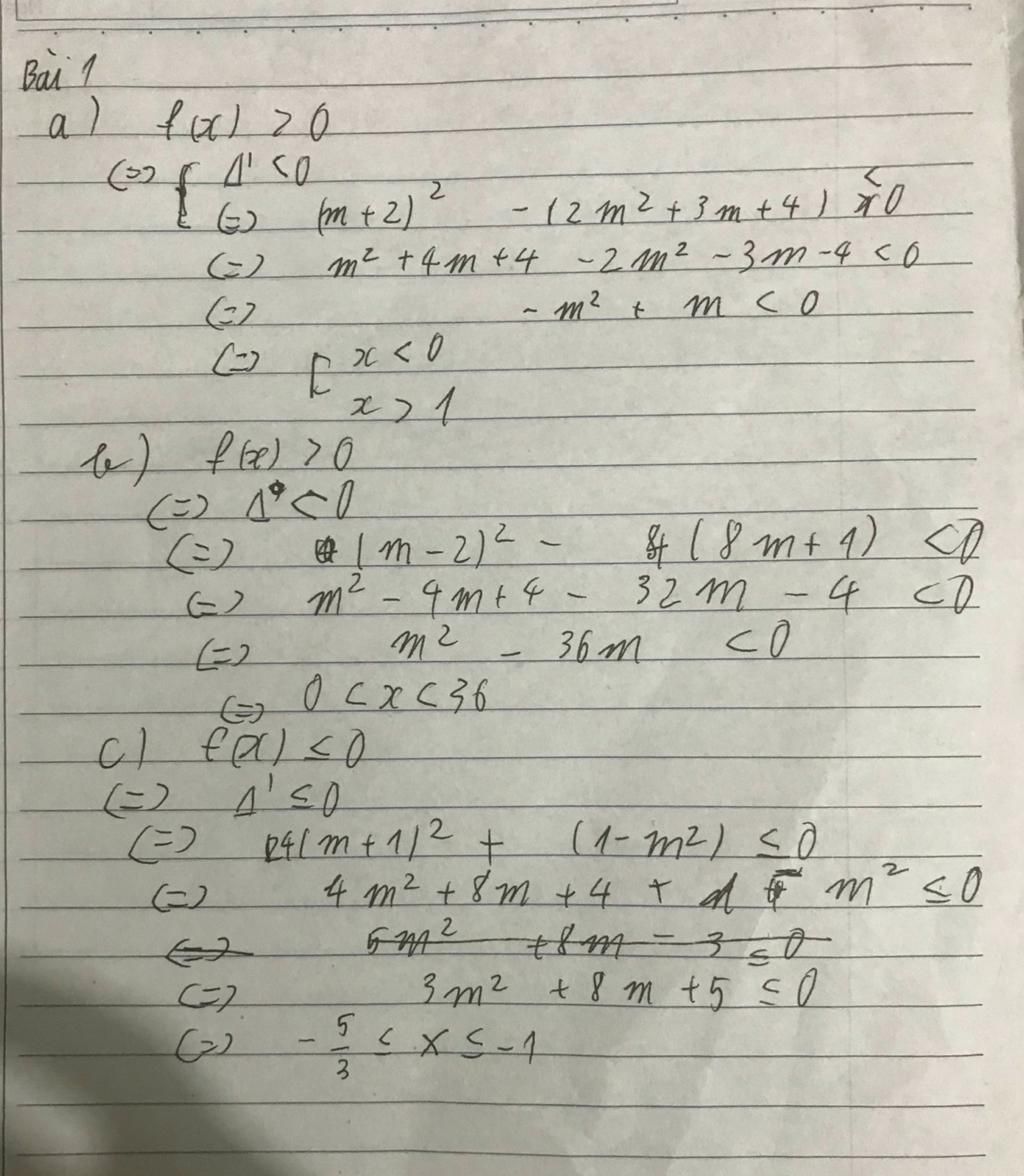 Bài 1
a) f(x) > 0
(=) { Δ' < 0
(=) (m+2)² - (2m²+3m+4) < 0
(=) m² + 4m + 4 - 2m² - 3m - 4 < 0
(=) - m² + m < 0
(=) [ x < 0
x > 1
b) f(x) > 0
(=) Δ < 0
(=) (m-2)² - 4(8m+1) < 0
(=) m² - 4m + 4 - 32m - 4 < 0
(=) m² - 36m < 0
(=) 0 < x < 36
c) f(x) ≤ 0
(=) Δ' ≤ 0
(=) 4(m+1)² + (1-m²) ≤ 0
(=) 4m² + 8m + 4 + 1 - m² ≤ 0
(=) 5m² + 8m - 3 ≤ 0
(=) 3m² + 8m + 5 ≤ 0
(=) - 5/3 ≤ x ≤ -1